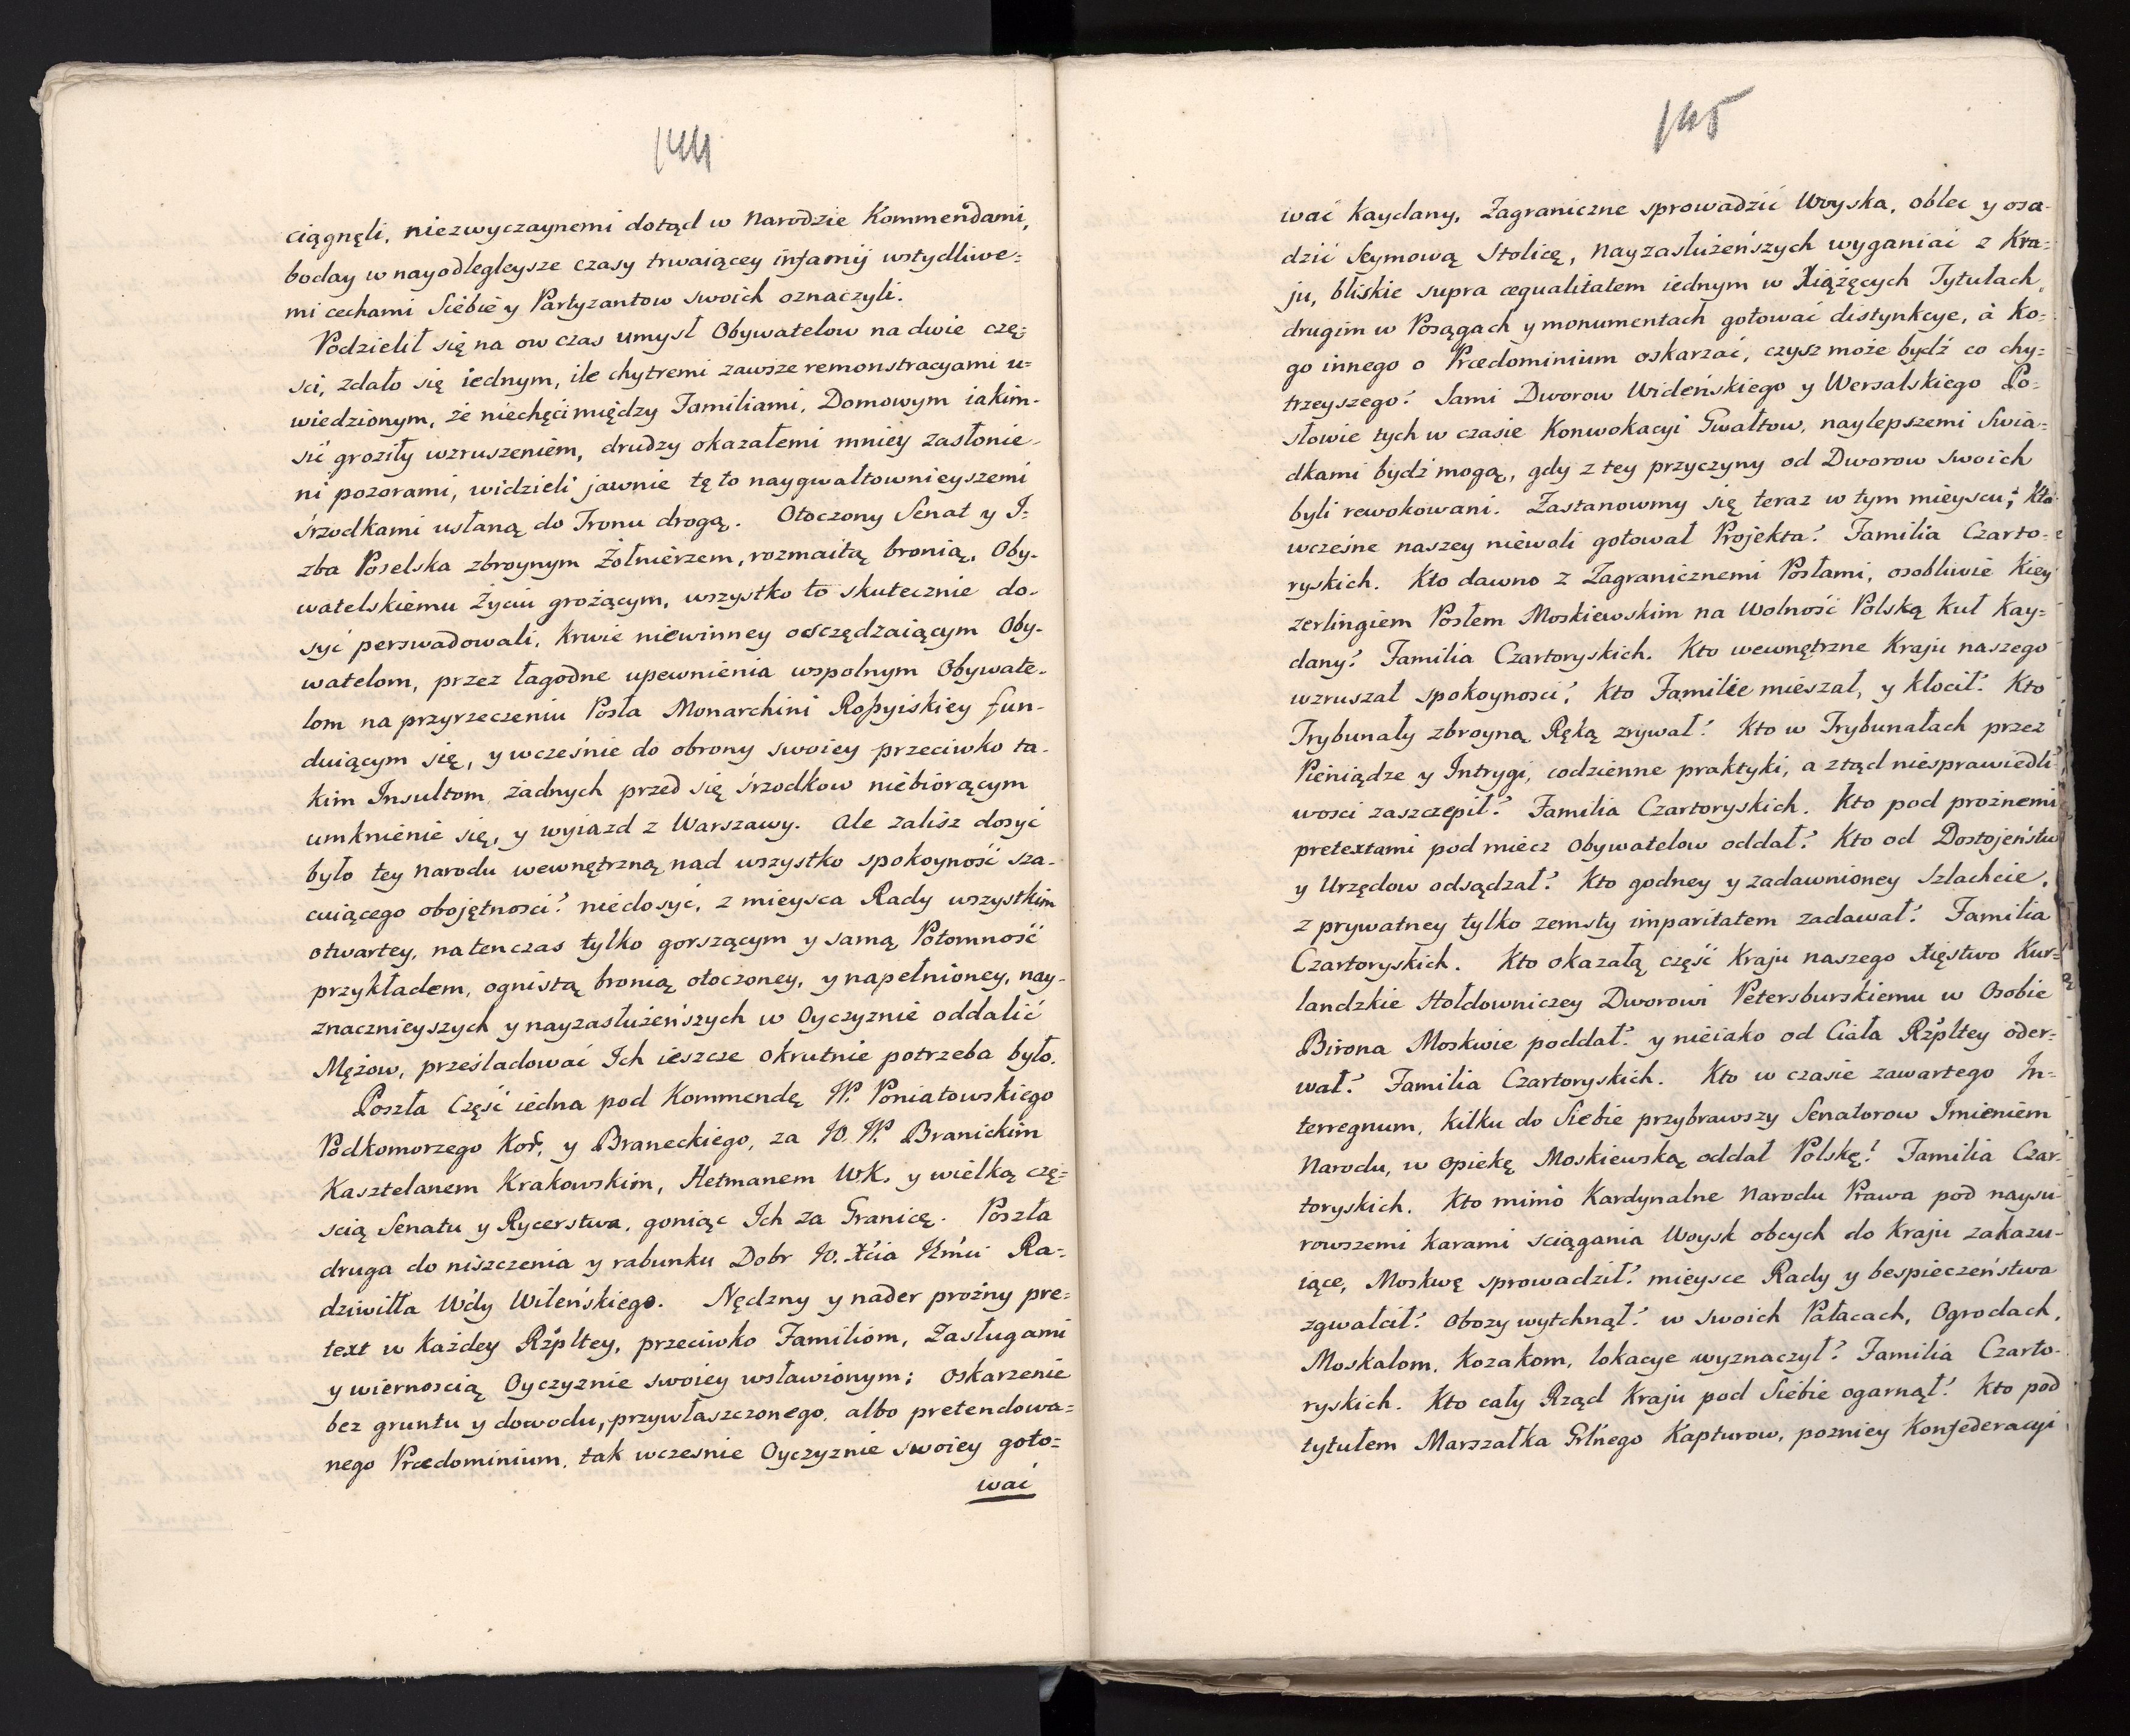 144
ciągnęli, niezwyczaynemi dotąd w Narodzie Kommendami,
boday w nayodlegleysze czasy trwaiącey infamij wstydliwe=
mi cechami Siebie y Partyzantow swoich oznaczyli.
Podzielił się na ow czas umysł Obywatelow na dwie czę=
sci, zdało się iednym, ile chytremi zawsze remonstracyami u=
wiedzionym, że niechęci między Familiami, Domowym iakim-
sić groziły wzruszeniem, drudzy okazałemi mniey zasłonie-
ni pozorami, widzieli jawnie tę to naygwałtownieyszemi
śrzodkami usłaną do Tronu drogą. Otoczony Senat y I=
zba Poselska zbroynym Żołnierzem, rozmaitą bronią, Oby-
watelskiemu Życiu grożącym, wszystko to skutecznie do-
syć perswadowali, krwie niewinney oszczędzaiącym Oby-
watelom, przez łagodne upewnienia wspolnym Obywate-
lom na przyrzeczeniu Posła Monarchini Roßyiskiey fun-
duiącym się, y wcześnie do obrony swoiey przeciwko ta-
kim Insultom, żadnych przed się śrzodkow niebiorącym
umknienie się, y wyiazd z Warszawy. Ale zalisz dosyć
było tey Narodu wewnętrzną nad wszystko spokoyność sza-
cuiącego obojętności? niedosyć, z mieysca Rady wszystkim
otwartey, natenczas tylko gorszącym y samą Potomność
przykładem, ognistą bronią otoczoney, y napełnioney, nay-
znacznieyszych y nayzasłużeńszych w Oyczyznie oddalić
Mężow, prześladować Ich ieszcze okrutnie potrzeba było.
Poszła Część iedna pod Kommendę W. Poniatowskiego
Podkomorzego Kor. y Braneckiego, za JO. W. Branickim
Kasztelanem Krakowskim, Hetmanem W.K. y wielką czę=
scią Senatu y Rycerstwa, goniąc Ich za Granicę. Poszła
druga do niszczenia y rabunku Dobr JO. Xćia Jmći Ra=
dziwiłła Wdy Wileńskiego. Nędzny y nader prożny pre=
text w każdey Rzpltey, przeciwko Familiom, Zasługami
y wiernoscią Oyczyznie swoiey wsławionym; oskarzenie
bez gruntu y dowodu, przywłaszczonego, albo pretendowa=
nego Prædominium, tak wczesnie Oyczyznie swoiey goto=
wać
145
wać Kaydany, Zagraniczne sprowadzić Woyska, oblec y osa-
dzić Seymową Stolicę, nayzasłużeńszych wyganiać z Kra=
ju, bliskie supra æqualitatem iednym w Xiążęcych Tytułach,
drugim w Posągach y monumentach gotować distynkcye, à Ko=
go innego o Prædominium oskarzać, czysz może bydź co chy=
trzeyszego? Sami Dworow Wideńskiego y Wersalskiego Po=
słowie tych w czasie Konwokacyi Gwałtow, naylepszemi Swia=
dkami bydź mogą, gdy z tey przyczyny od Dworow swoich
byli rewokowani. Zastanowmy się teraz w tym mieyscu; Kto
wcześne naszey niewoli gotował Projekta? Familia Czarto-
ryskich. Kto dawno z Zagranicznemi Posłami, osobliwie Kiey
zerlingiem Posłem Moskiewskim na Wolność Polską kuł Kay=
dany? Familia Czartoryskich. Kto wewnętrzne Kraju naszego
wzruszał spokoynosci? Kto Familie mieszał, y kłocił? Kto
Trybunały zbroyną Ręką zrywał? Kto w Trybunałach przez
Pieniądze y Intrygi, codzienne praktyki, a ztąd niesprawiedli
wosci zaszczepił? Familia Czartoryskich. Kto pod prożnemi
pretextami pod miecz Obywatelow oddał? Kto od Dostojeństw
y Urzędow odsądzał? Kto godney y zadawnioney Szlachcie,
z prywatney tylko zemsty imparitatem zadawał? Familia
Czartoryskich. Kto okazałą część Kraju naszego Xięstwo Kur=
landzkie Hołdowniczey Dworowi Petersburskiemu w Osobie
Birona Moskwie poddał? y nieiako od Ciała Rzpltey oder=
wał? Familia Czartoryskich. Kto w czasie zawartego In=
terregnum, kilku do Siebie przybrawszy Senatorow Imieniem
Narodu, w opiekę Moskiewską oddał Polskę? Familia Czar-
toryskich. Kto mimo Kardynalne Narodu Prawa pod naysu-
rowszemi karami sciągania Woysk obcych do Kraju zakazu-
iące, Moskwę sprowadził? mieysce Rady y bespieczeństwa
zgwałcił? Obozy wytchnął? w swoich Pałacach, Ogrodach,
Moskalom, Kozakom, lokacye wyznaczył? Familia Czarto-
ryskich. Kto cały Rząd Kraju pod Siebie ogarnął? Kto pod
tytułem Marszałka Grlnego Kapturow, pozniey Konfederacyi